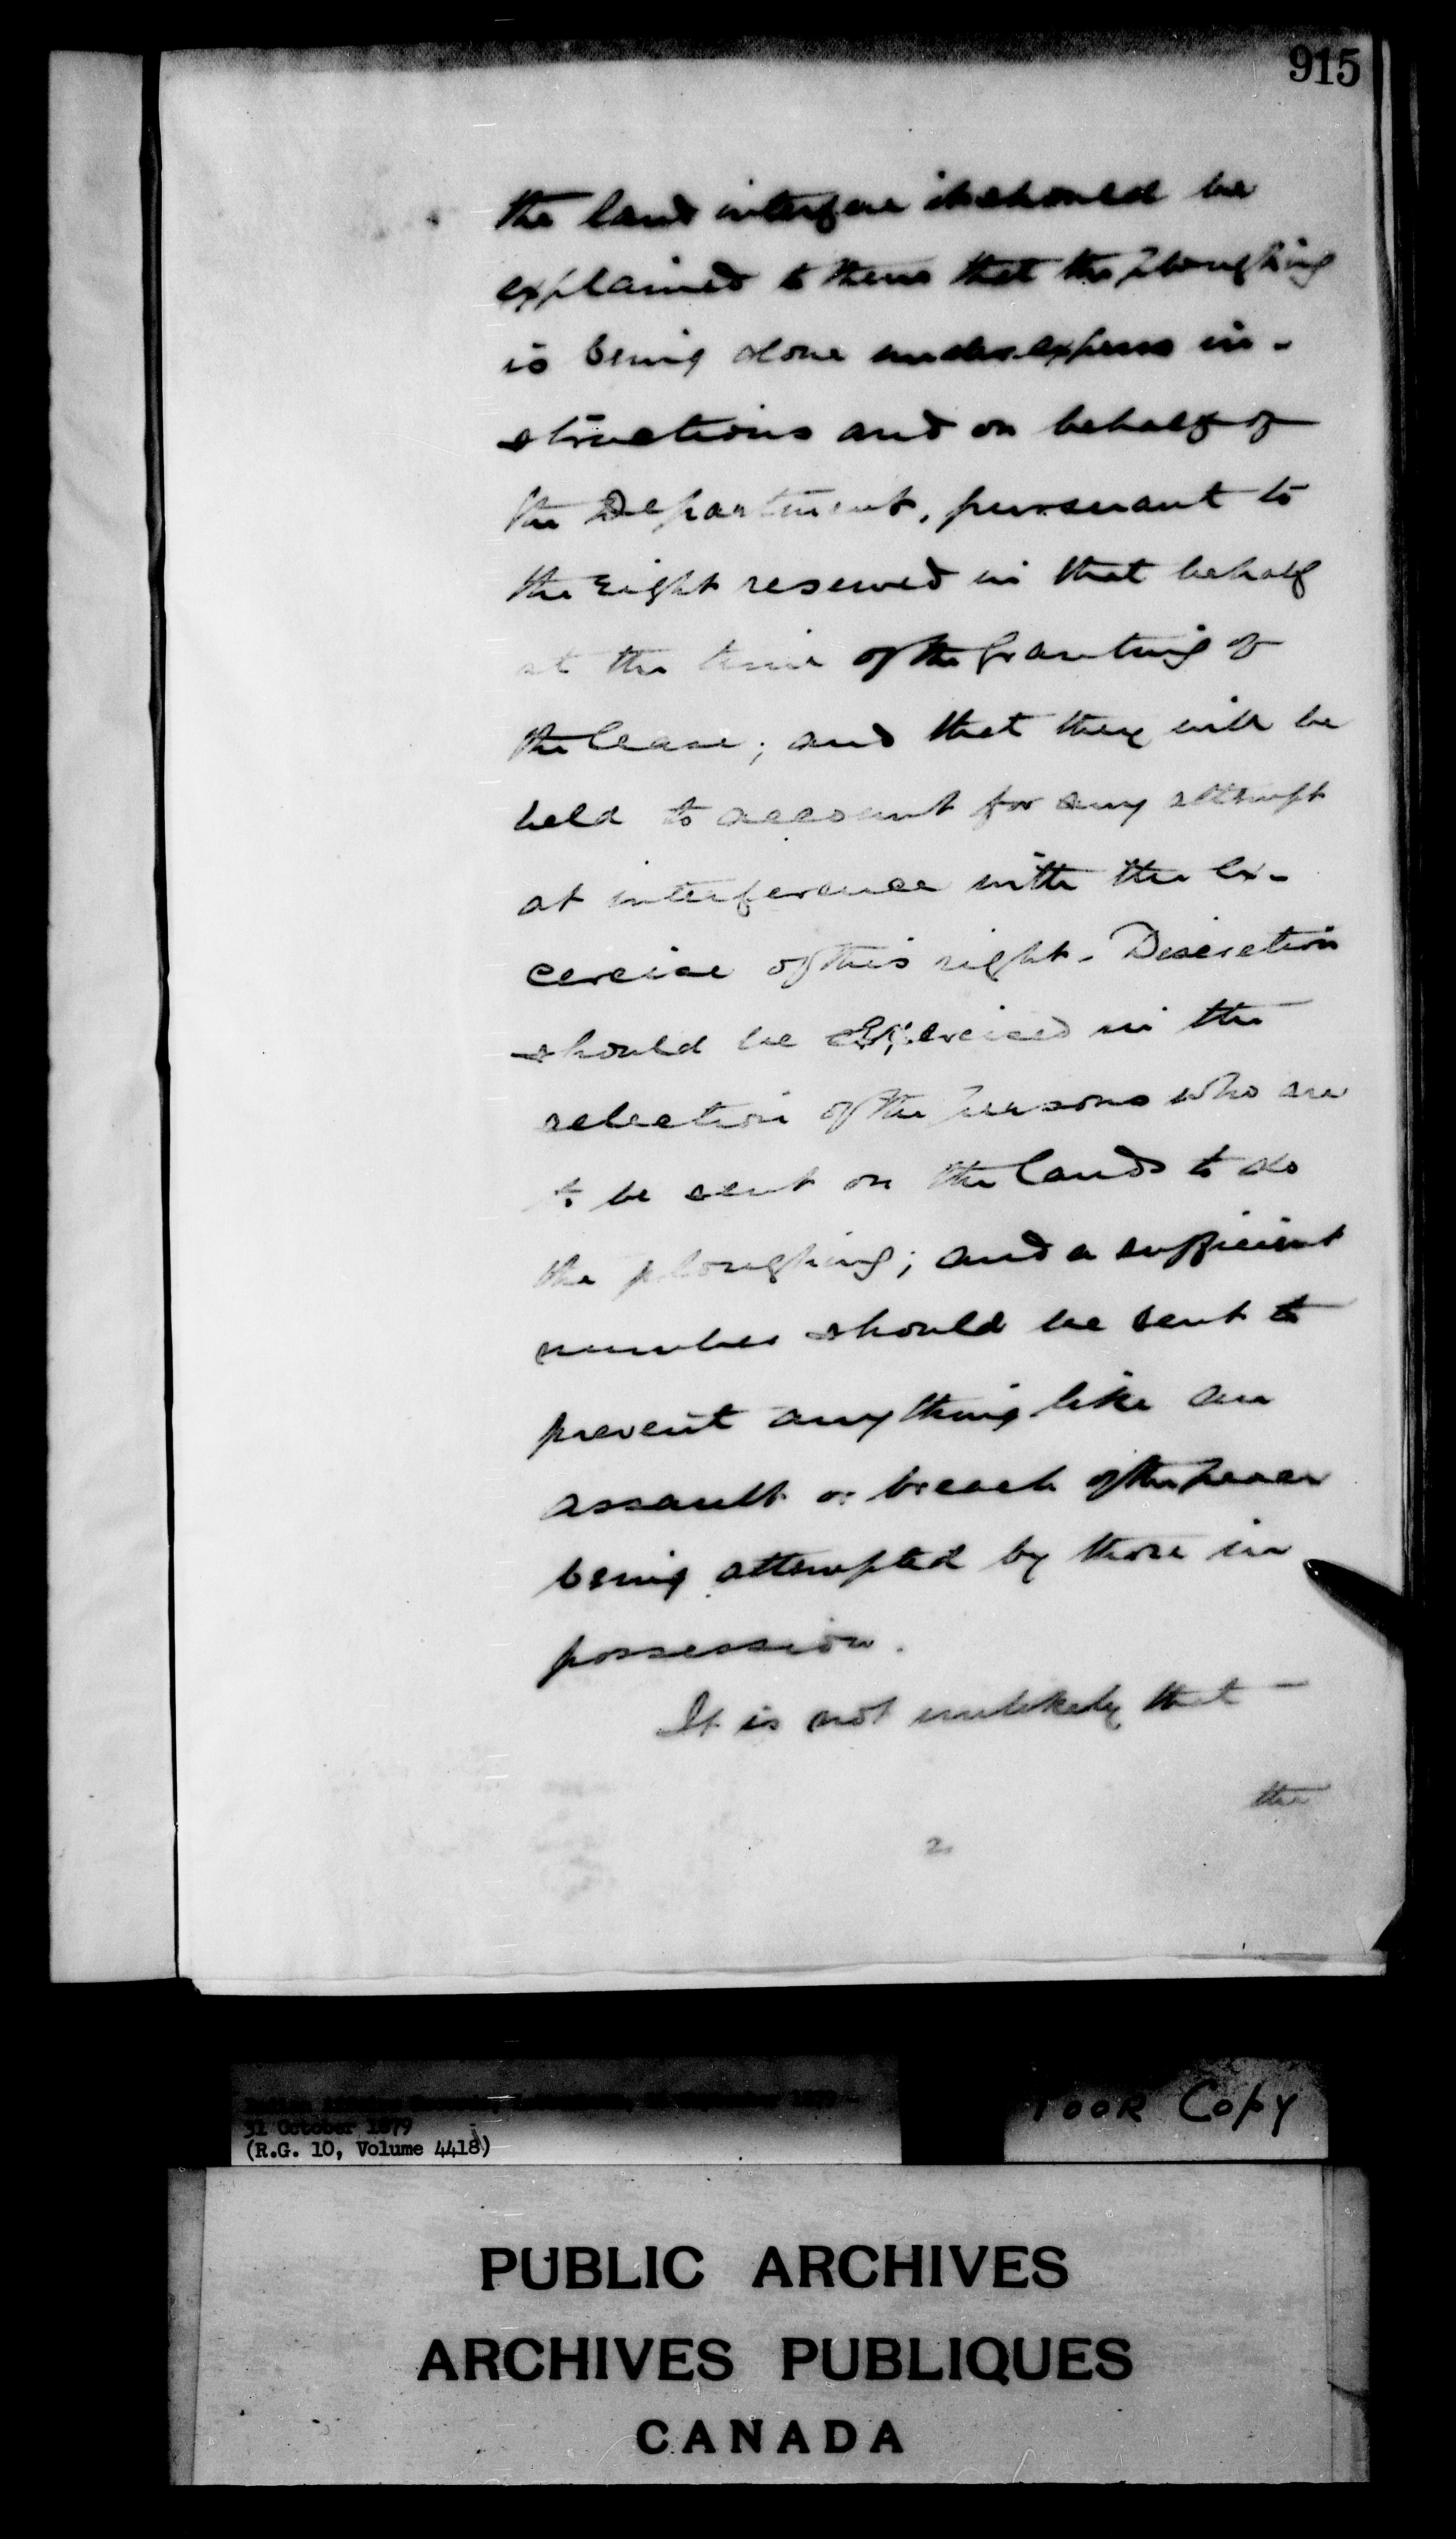 915
the land interfere it should be
explained to them that the ploughing
is being done under express in-
structions and on behalf of
the Department, pursuant to
the right reserved in that behalf
at the time of the granting of
the lease; and that they will be
held to account for any attempt
at interference with the ex-
cercise of this right. Discretion
should be exercised in the
selection of the persons who are
to be sent on the lands to do
the ploughing; and a sufficient
number should be sent to
prevent anything like an
assault or breach of the peace
being attempted by those in
possession.
It is not unlikely that
the
2
31 October 1879
(R.G. 10, Volume 4418)
POOR COPY
PUBLIC ARCHIVES
ARCHIVES PUBLIQUES
CANADA